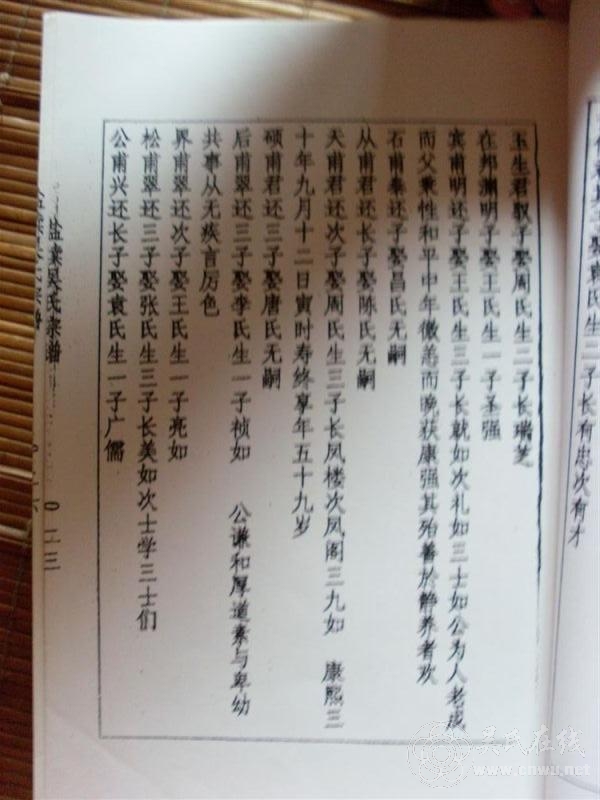 玉生君驭子娶周氏生二子长瑞芝
在邦渊明子娶王氏生一子圣强
宾甫明还子娶王氏生三子长就如次礼如三士如公为人老成
而父秉性和平中年微恙而晚获康强其殆善於静养者欢
石甫泰还子娶昌氏无嗣
从甫君还长子娶陈氏无嗣
天甫君还次子娶周氏生三子长凤楼次凤阁三九如 康熙三
十年九月十二日寅时寿终享年五十九岁
硕甫君还三子娶唐氏无嗣
后甫翠还三子娶李氏生一子祯如 公谦和厚道素与卑幼
共事从无疾言厉色
界甫翠还次子娶王氏生一子亮如
松甫翠还三子娶张氏生三子长美如次士学三士们
公甫兴还长子娶袁氏生一子广儒
吴氏宗谱
0二三
氏生二子长有忠次有才
吴氏在线
www.cnwu.net